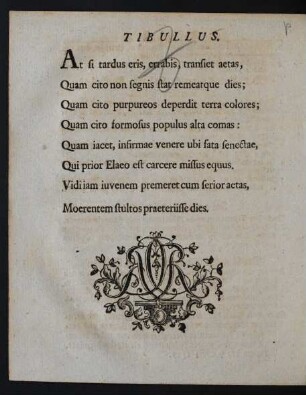 TIBULLUS.
At si tardus eris, errabis, transiet aetas,
Quam cito non segnis stat remeatque dies;
Quam cito purpureos deperdit terra colores;
Quam cito formosus populus alta comas:
Quam iacet, infirmae venere ubi fata senectae,
Qui prior Elaeo est carcere missus equus.
Vidi iam iuvenem premeret cum serior aetas,
Moerentem stultos praeteriisse dies.